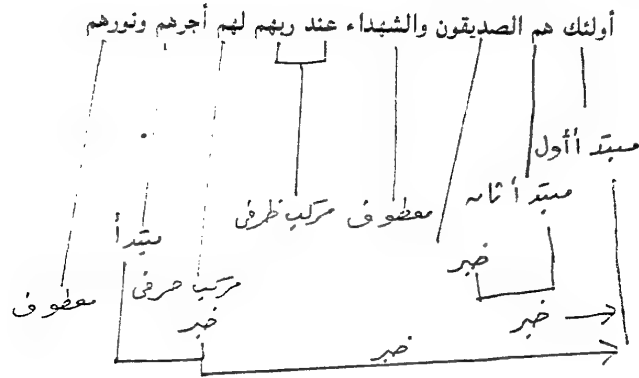 أولئك هم الصديقون والشهداء عند ربهم لهم أجرهم ونورهم
مبتدأ أول
مبتدأ ثان
معطوف
مركب ظرفى
مبتدأ
خبر
مركب حرفى
معطوف
خبر
خبر
خبر